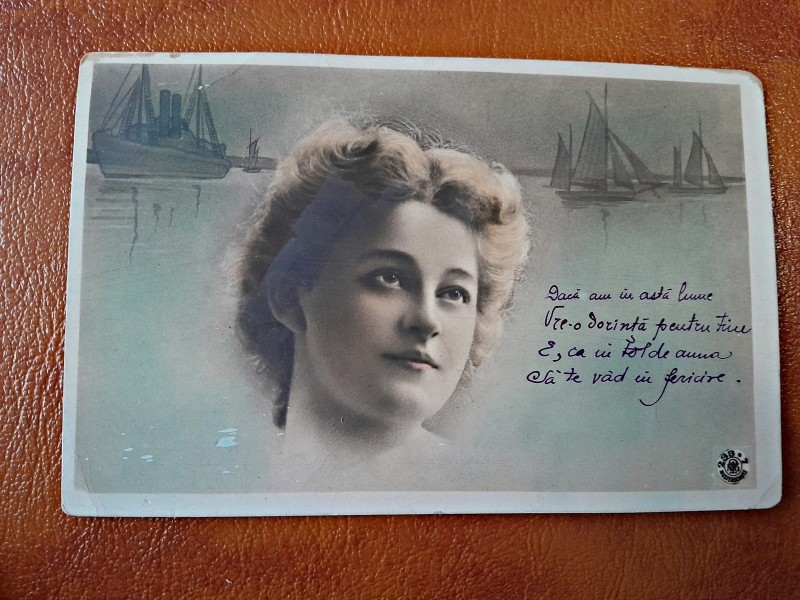 Dacă am în astă lume
Vre-o dorință pentru tine
E, ca în totdeauna
Să te văd în fericire.
299.1